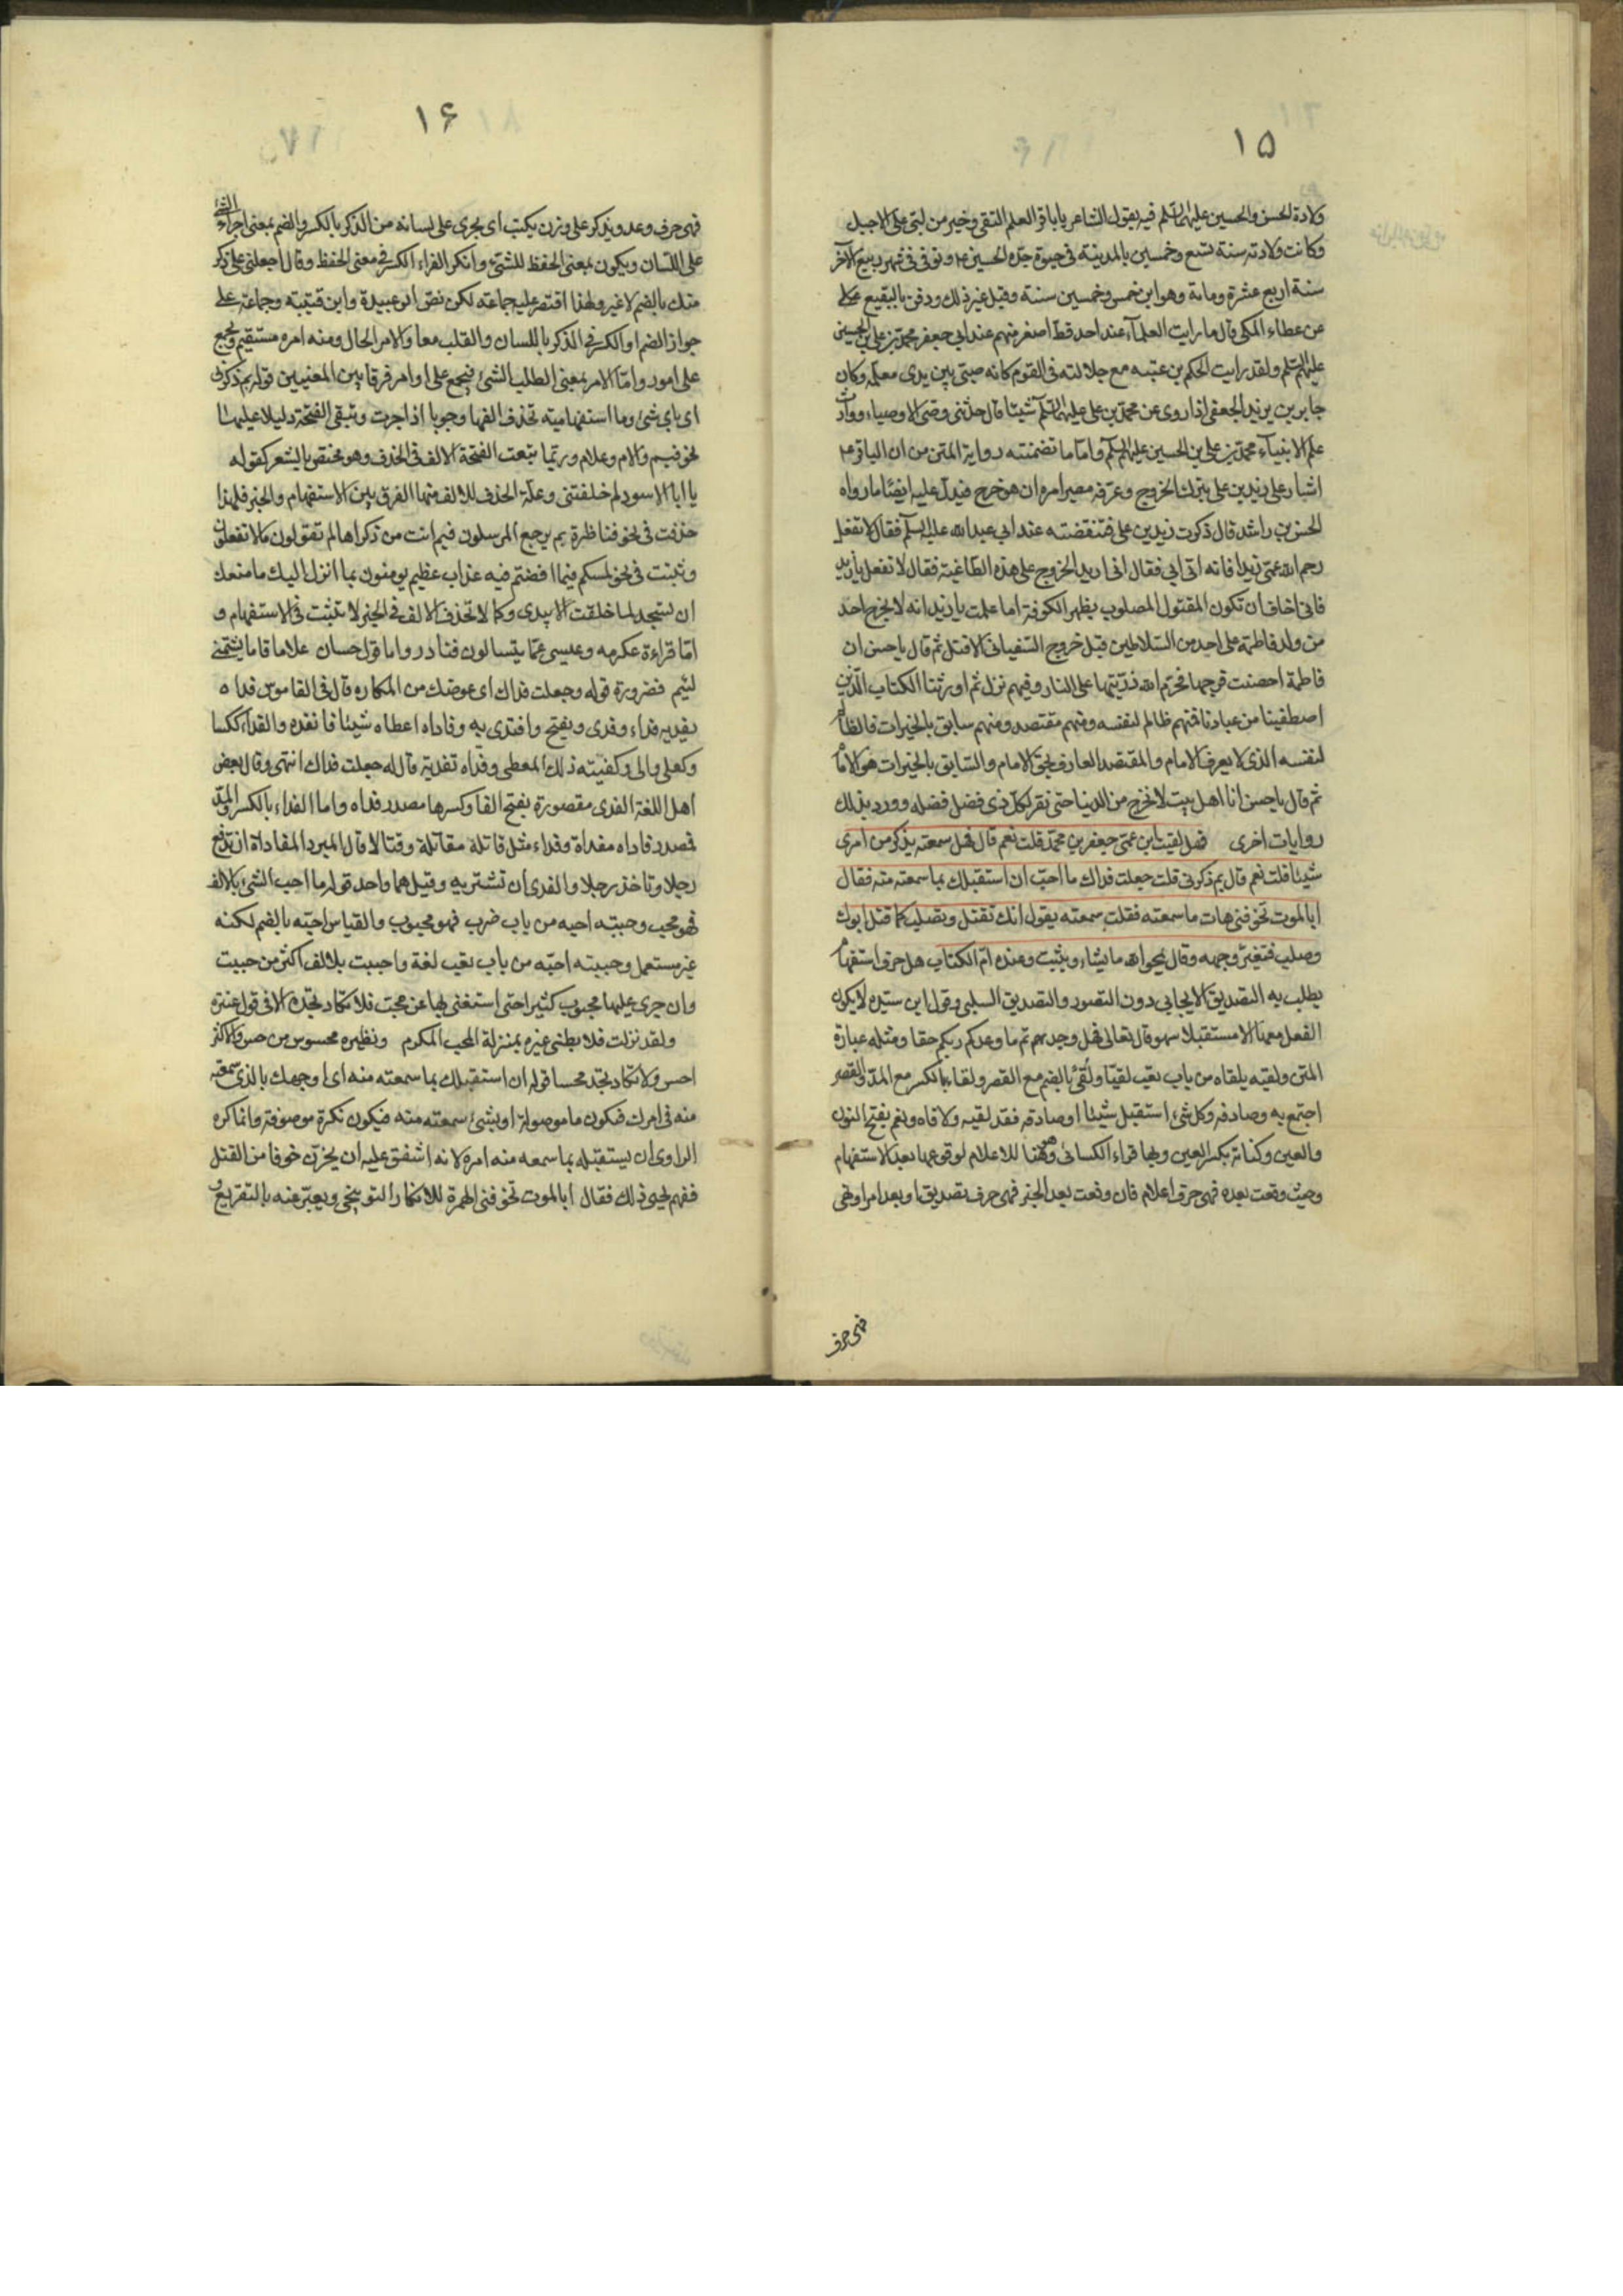 ١٥
ولادة الحسن والحسين عليهما السلم فيه يقول الشاعر يا باقر العلم التقى وخير من لبّى على الاجبل
وكانت ولادته سنة تسع وخمسين بالمدينة فى حيوة جدّه الحسين ع وتوفى فى شهر ربيع الآخر
سنة اربع عشرة ومائة وهو ابن خمس وخمسين سنة وقيل غير ذلك ودفن بالبقيع
عن عطاء المكى قال ما رايت العلماء عند احد قطّ اصغر منهم عند ابى جعفر محمّد بن على بن الحسين
عليهم السّلم ولقد رايت الحكم بن عتيبه مع جلالته فى القوم كانه صبىّ بين يدى معلّمه وكان
جابر بن يزيد الجعفى اذا روى عن محمّد بن على عليهما السّلم شيئا قال حدّثنى وصىّ الاوصياء ووارث
علم الانبياء محمّد بن على بن الحسين عليهم السّلم وامّا ما تضمنته رواية المتن من ان الباقر ع
اشار على زيد بن على بترك الخروج وعرّفه مصير امره ان هو خرج فيدلّ عليه ايضًا ما رواه
الحسن بن راشد قال ذكرت زيد بن على فتنقصته عند ابى عبد الله عليه السلم فقال لا تفعل
رحم الله عمّى زيدا فانه اتى ابى فقال انى اريد الخروج على هذه الطّاغية فقال لا تفعل يا زيد
فانى اخاف ان تكون المقتول المصلوب بظهر الكوفة اما علمت يا زيد انه لا يخرج احد
من ولد فاطمة على احد من السّلاطين قبل خروج السّفيانى الا قتل ثم قال يا حسن ان
فاطمة احصنت فرجها فحرّم الله ذريّتها على النار وفيهم نزل ثم اورثنا الكتاب الّذين
اصطفينا من عبادنا فمنهم ظالم لنفسه ومنهم مقتصد ومنهم سابق بالخيرات فالظالم
لنفسه الذى لا يعرف الامام والمقتصد العارف بحقّ الامام والسّابق بالخيرات هو الامام
ثم قال يا حسن انا اهل بيت لا نخرج من الدنيا حتى نقر لكلّ ذى فضل فضله وورد بذلك
روايات اخرى فهل لقيت ابن عمّى جعفر بن محمّد قلت نعم قال فهل سمعته يذكر من امرى
شيئا قلت نعم قال بم ذكرنى قلت جعلت فداك ما احبّ ان استقبلك بما سمعته منه فقال
ابالموت تخوفنى هات ما سمعته فقلت سمعته يقول انك تقتل وتصلب كما قتل ابوك
وصلب فتغيّر وجهه وقال يمحو الله ما يشاء ويثبت وعنده امّ الكتاب هل حرف استفهام
يطلب به التصديق الايجابى دون التصور والتصديق السلبى وقول ابن سيّده لا يكون
الفعل معها الا مستقبلا سهو قال تعالى فهل وجدتم ما وعدكم ربكم حقا ومثله عبارة
المتن ولقيه يلقاه من باب تعب لقيّا ولُقًى بالضم مع القصر ولقاء بالكسر مع المدّ والقصر
اجتمع به وصادفه وكل شىء استقبل شيئا او صادفه فقد لقيه ولاقاه ونعم بفتح النون
والعين وكنانة بكسر العين وبها قراء الكسائى وهى هنا للاعلام لوقوعها بعد الاستفهام
وحيث وقعت بعده فهى حرف اعلام فان وقعت بعد الخبر فهى حرف تصديق او بعد امر او نهى
فهى حرف
١۶
فهى حرف وعد ويذكر على وزن يكتب اى يجرى على لسانه من الذكر بالكسر والضم بمعنى اجراء الشئ
على اللّسان ويكون بمعنى الحفظ للشئ وانكر الفراء الكسر فى معنى الحفظ وقال اجعلنى على ذكر
منك بالضم لا غير ولهذا اقتصر عليه جماعة لكن نصّ ابو عبيدة وابن قتيبة وجماعة على
جواز الضم والكسر فى الذكر باللسان والقلب معا والامر الحال ومنه امره مستقيم ويجمع
على امور وامّا الامر بمعنى الطلب الشئ فيجمع على اوامر فرقا بين المعنيين قوله بم ذكرنى
اى باى شئ وما استفهامية تحذف الفها وجوبا اذا جرت وتبقى الفتحة دليلا عليها
نحو فيم والام وعلام وربّما تبعت الفتحة الالف فى الحذف وهو مختص بالشعر كقوله
يا ابا الاسود لم خلفتنى وعلّة الحذف للالف منها الفرق بين الاستفهام والخبر فلهذا
حذفت فى نحو فناظرة بم يرجع المرسلون فيم انت من ذكراها لم تقولون ما لا تفعلون
وثبتت فى نحو لمسكم فيما افضتم فيه عذاب عظيم يومنون بما انزل اليك ما منعك
ان تسجد لما خلقت بيدى وكما لا تحذف الالف فى الخبر لا تثبت فى الاستفهام و
امّا قراءة عكرمه وعيسى عمّا يتسالون فنادر واما قول حسان علاما قاما يشتمنى
لئيم فضرورة قوله وجعلت فداك اى عوضك من المكاره قال فى القاموس فداه
يفديه فداء وفدى ويفتح وافتدى به وفاداه اعطاه شيئا فانقذه والفداء ككسا
وكعلى والى وكفتيته ذلك المعطى وفداه تفدية قال له جعلت فداك انتهى وقال بعض
اهل اللغة الفدى مقصورة بفتح الفا وكسرها مصدر فداه واما الفداء بالكسر والمدّ
فمصدر فاداه مفاداة وفداء مثل قاتلة مقاتلة وقتالا قال المبرد المفاداة ان تدفع
رجلا وتاخذ رجلا والفدى ان تشتريه وقيل هما واحد قوله ما احب الشئ بالالف
فهو محب وحببته احبه من باب ضرب فهو محبوب والقياس احبّه بالضم لكنه
غير مستعمل وحببته احبّه من باب تعب لغة واحببت بالالف اكثر من حببت
وان جرى عليها محبوب كثيرا حتى استغنى بها عن محبّ فلا تكاد تجده الا فى قول عنترة
ولقد نزلت فلا تظنى غيره بمنزلة المحب المكرم ونظيره محسوس من حس والاكثر
احس ولا تكاد تجد محسا قوله ان استقبلك بما سمعته منه اى اوجهك بالذى سمعته
منه فى امرك فيكون ما موصولة او بشئ سمعته منه فيكون نكرة موصوفة وانما كره
الراوى ان يستقبله بما سمعه منه امره لانه اشفق عليه ان يحزن خوفا من القتل
ففهم يحيى ذلك فقال ابالموت تخوفنى الهمزة للانكار التوبيخى ويعبّر عنه بالتقريع